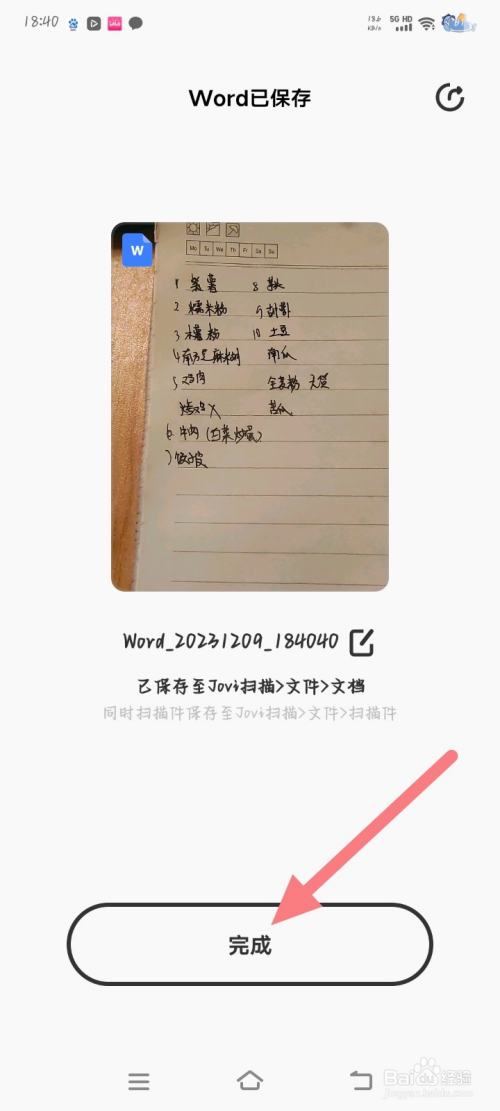 18:40
13.6 KB/s 5G HD
Word已保存
W
Mo Tu We Th Fr Sa Su
1 紫薯 8
2 糯米粉 9
3 木薯粉 10 土豆
4 南方黑麻糊 南瓜
5 鸡肉 全麦粉 无
烤鸡 X 苦瓜
6 牛肉 (白菜
7 饺子皮
Word_20231209_184040
已保存至Jovi扫描>文件>文档
同时扫描件保存至Jovi扫描>文件>扫描件
完成
Baidu经验
jingyan.baidu.com